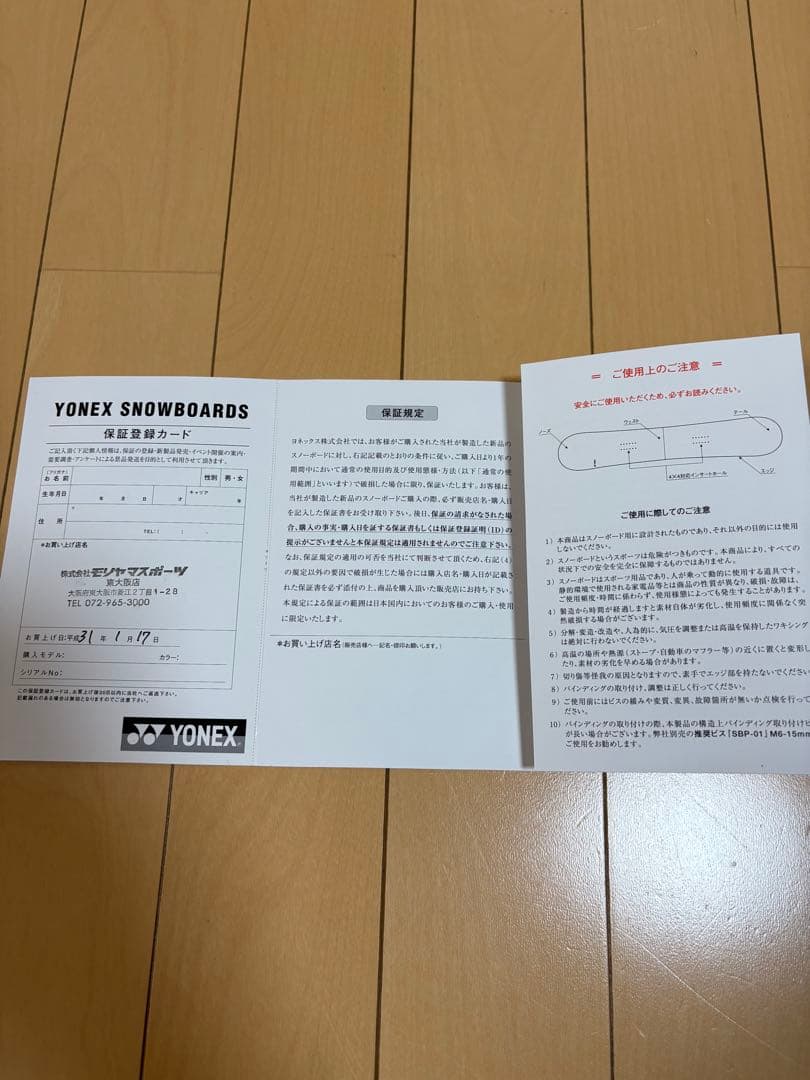 YONEX SNOWBOARDS
保証登録カード
ご記入頂く下記購入情報は、保証の登録・新製品発売・イベント開催の案内・
需要調査・アンケートによる景品発送を目的として利用させて頂きます。
(フリガナ)
お名前
性別
男・女
生年月日
年 月 日 才
キャリア
年
住 所
〒
TEL: ( ) -
*お買い上げ店名
株式会社モリヤマスポーツ
東大阪店
大阪府東大阪市菱江2丁目1-28
TEL 072-965-3000
お買上げ日:平成31年 1月 17日
購入モデル: カラー:
シリアルNo:
この保証登録カードは、お買上げ後20日以内に当社へご返送下さい。
記載漏れのある場合は無効となりますのでご注意下さい。
YONEX
保証規定
ヨネックス株式会社では、お客様がご購入された当社が製造した新品の
スノーボードに対し、右記記載のとおりの条件に従い、ご購入日より1年の
期間中において通常の使用目的及び使用態様・方法(以下「通常の使
用範囲」といいます)で破損した場合に限り、保証いたします。お客様は、
当社が製造した新品のスノーボードご購入の際、必ず販売店名・購入日
を記入した保証書をお受け取り下さい。後日、保証の請求がなされた場
合、購入の事実・購入日を証する保証書もしくは保証登録証明(ID)の
提示がございませんと本保証規定は適用されませんのでご注意下さい。
なお、保証規定の適用の可否を当社にて判断させて頂くため、右記(4)
の規定以外の要因で破損が生じた場合には購入店名・購入日が記載さ
れた保証書を必ず添付の上、商品を購入頂いた販売店にお持ち下さい。
本規定による保証の範囲は日本国内においてのお客様のご購入・使用
に限定いたします。
*お買い上げ店名(販売店様へ…記名・捺印お願いします。)
= ご使用上のご注意 =
安全にご使用いただくため、必ずお読みください。
ノーズ
ウェスト
テール
エッジ
4×4対応インサートホール
ご使用に際してのご注意
1) 本商品はスノーボード用に設計されたものであり、それ以外の目的には使用
しないでください。
2) スノーボードというスポーツは危険がつきものです。本商品により、すべての
状況下での安全を完全に保障するものではありません。
3) スノーボードはスポーツ用品であり、人が乗って動的に使用する道具です。
静的環境で使用される家電品等とは商品の性質が異なり、破損・故障は、
ご使用頻度・時間に係わらず、使用様態によっても発生することがあります。
4) 製造から時間が経過しますと素材自体が劣化し、使用頻度に関係なく突
然破損する場合がございます。
5) 分解・変造・改造や、人為的に、気圧を調整または高温を保持したワキシング
は絶対に行わないでください。
6) 高温の場所や熱源(ストーブ・自動車のマフラー等)の近くに置くと変形し
たり、素材の劣化を早める場合があります。
7) 切り傷等怪我の原因となりますので、素手でエッジ部を持たないでください。
8) バインディングの取り付け、調整は正しく行ってください。
9) ご使用前にはビスの緩みや変質、変異、故障箇所が無いか点検を行って
ください。
10) バインディングの取り付けの際、本製品の構造上バインディング取り付けビ
が長い場合がございます。弊社別売の推奨ビス「SBP-01」M6-15mm
ご使用をお勧めします。